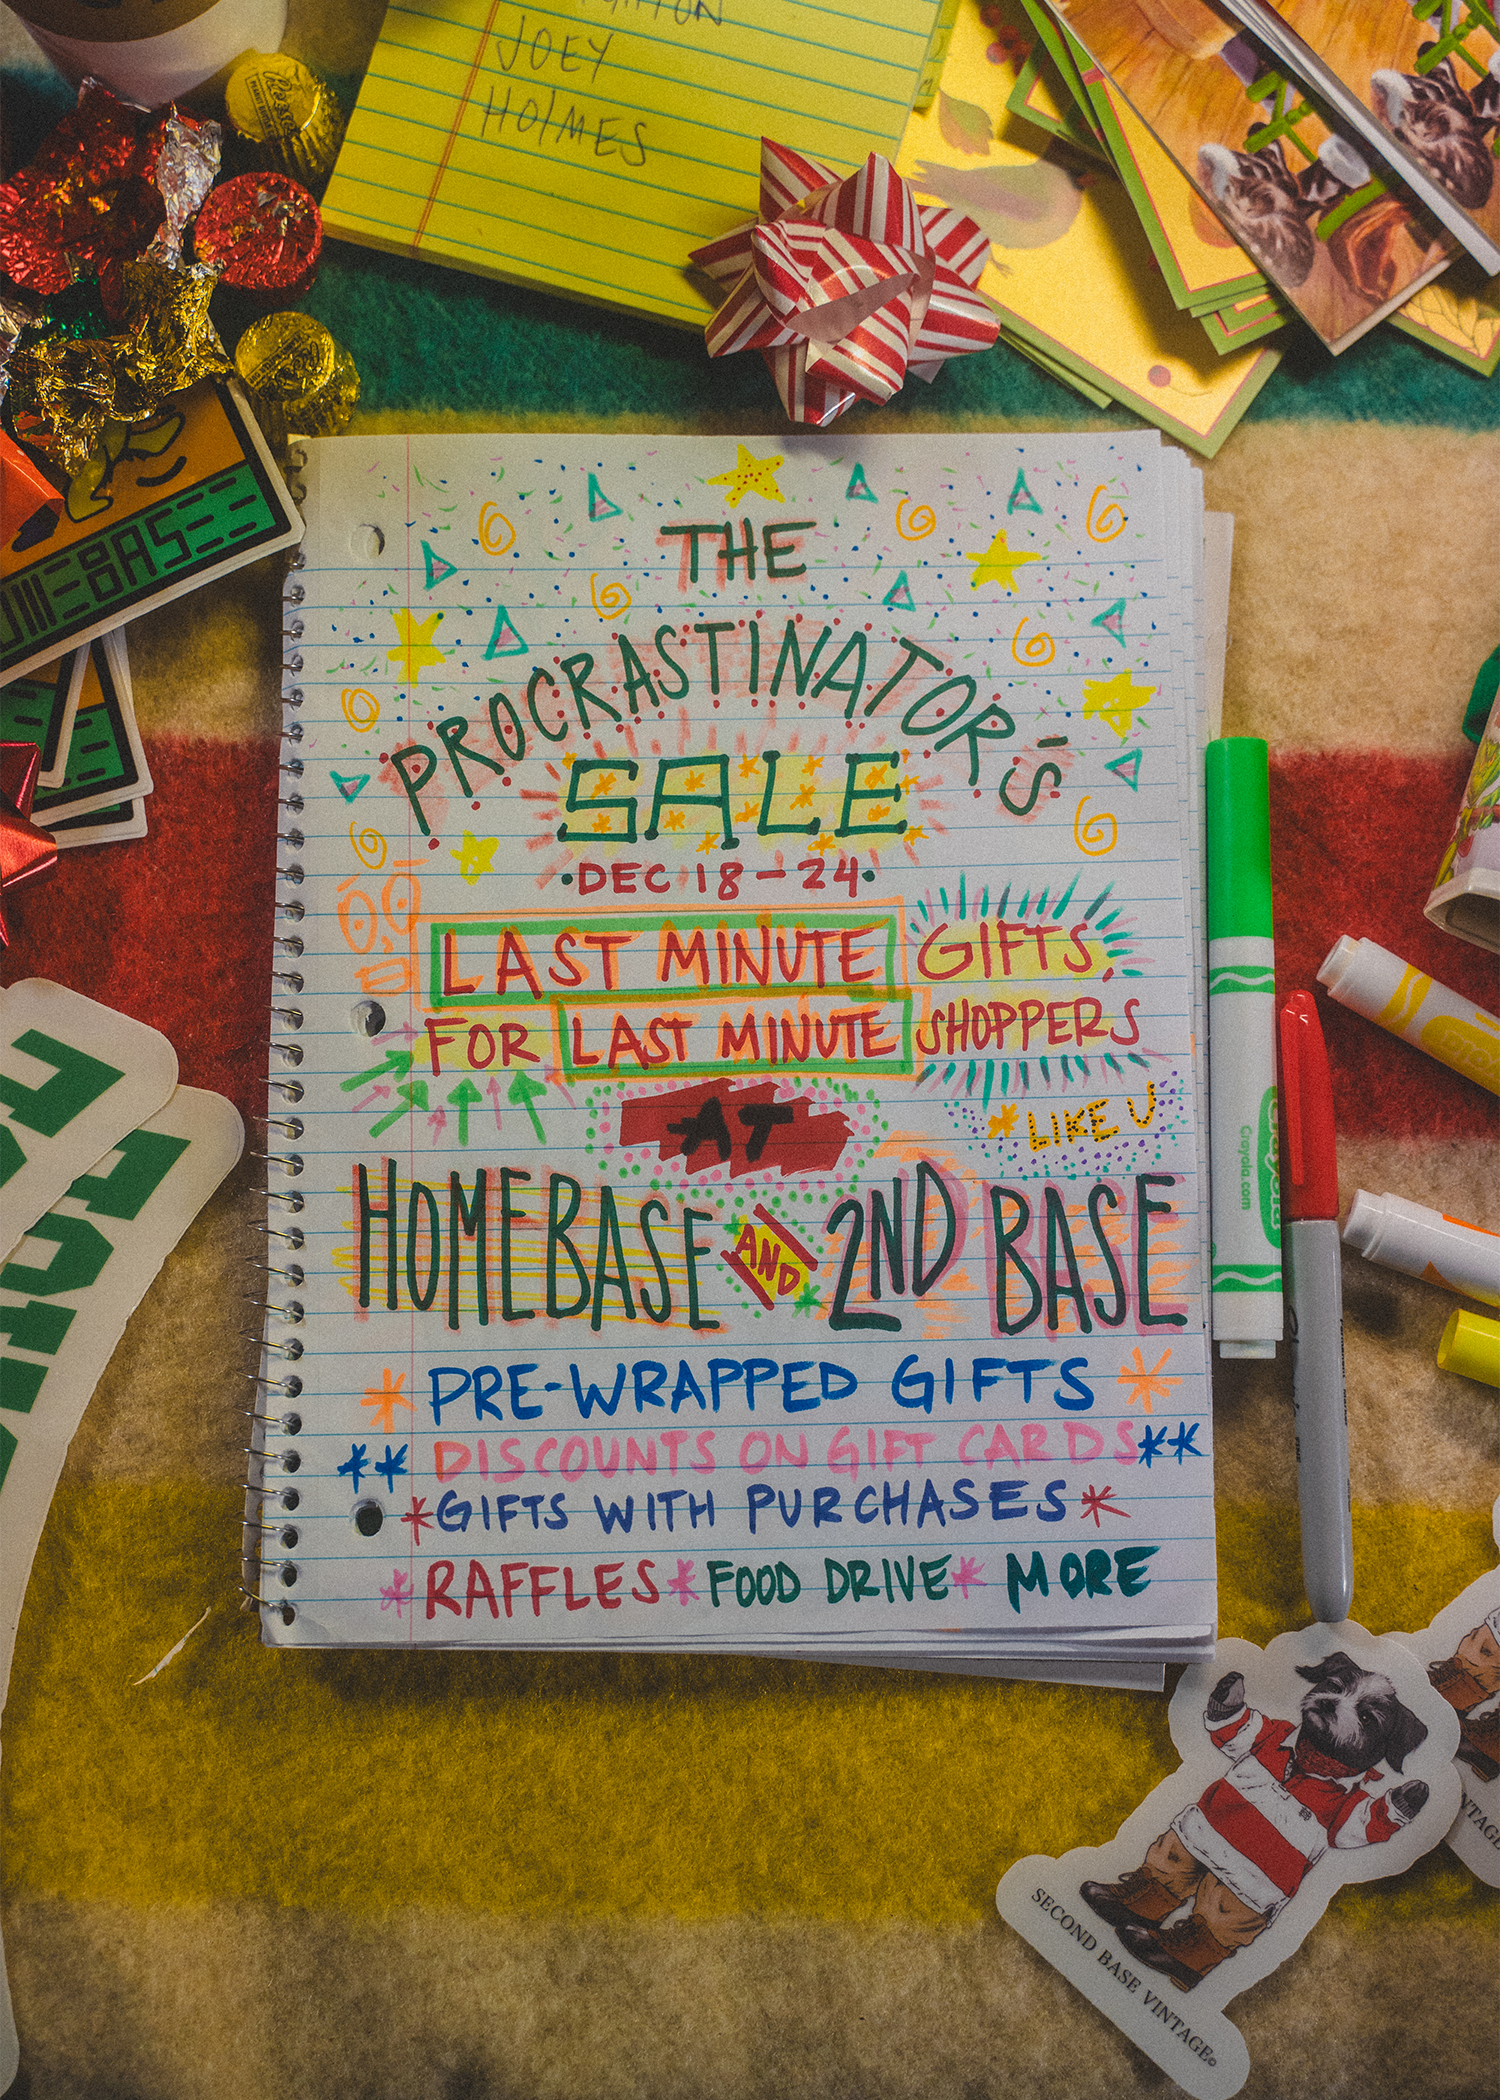 JOEY
HOLMES
Reese's
THE
PROCRASTINATOR'S
SALE
•DEC 18-24•
LAST MINUTE GIFTS,
FOR LAST MINUTE SHOPPERS
* LIKE U
AT
HOMEBASE AND 2ND BASE
* PRE-WRAPPED GIFTS *
** DISCOUNTS ON GIFT CARDS **
* GIFTS WITH PURCHASES *
* RAFFLES * FOOD DRIVE * MORE
Crayola
Crayola.com
Sharpie
SECOND BASE VINTAGE©